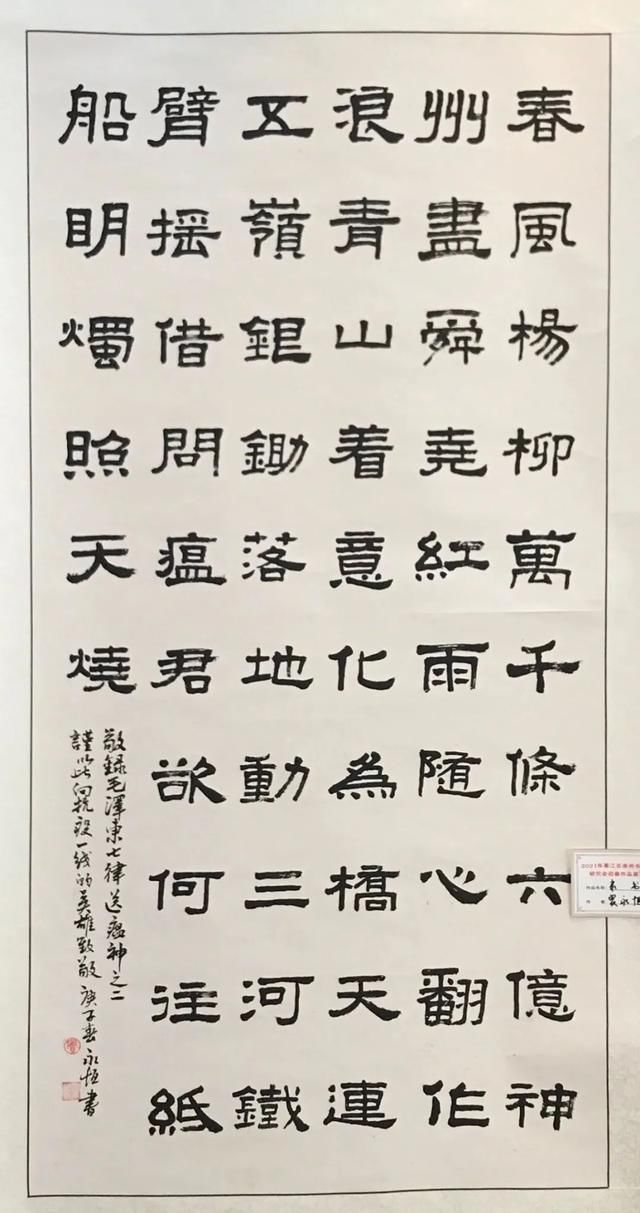 春風楊柳萬千條六億神
州盡舜堯紅雨隨心翻作
浪青山着意化為橋天連
五嶺鉬鋤落地動三河鐵
臂摇借問瘟君欲何往紙
船明燭照天燒
敬録毛澤東七律送瘟神之二
謹此向抗疫一线的英雄致敬庚子春永恒書
2021年綦江区
研究会迎春作品展
作品名称:
作者: